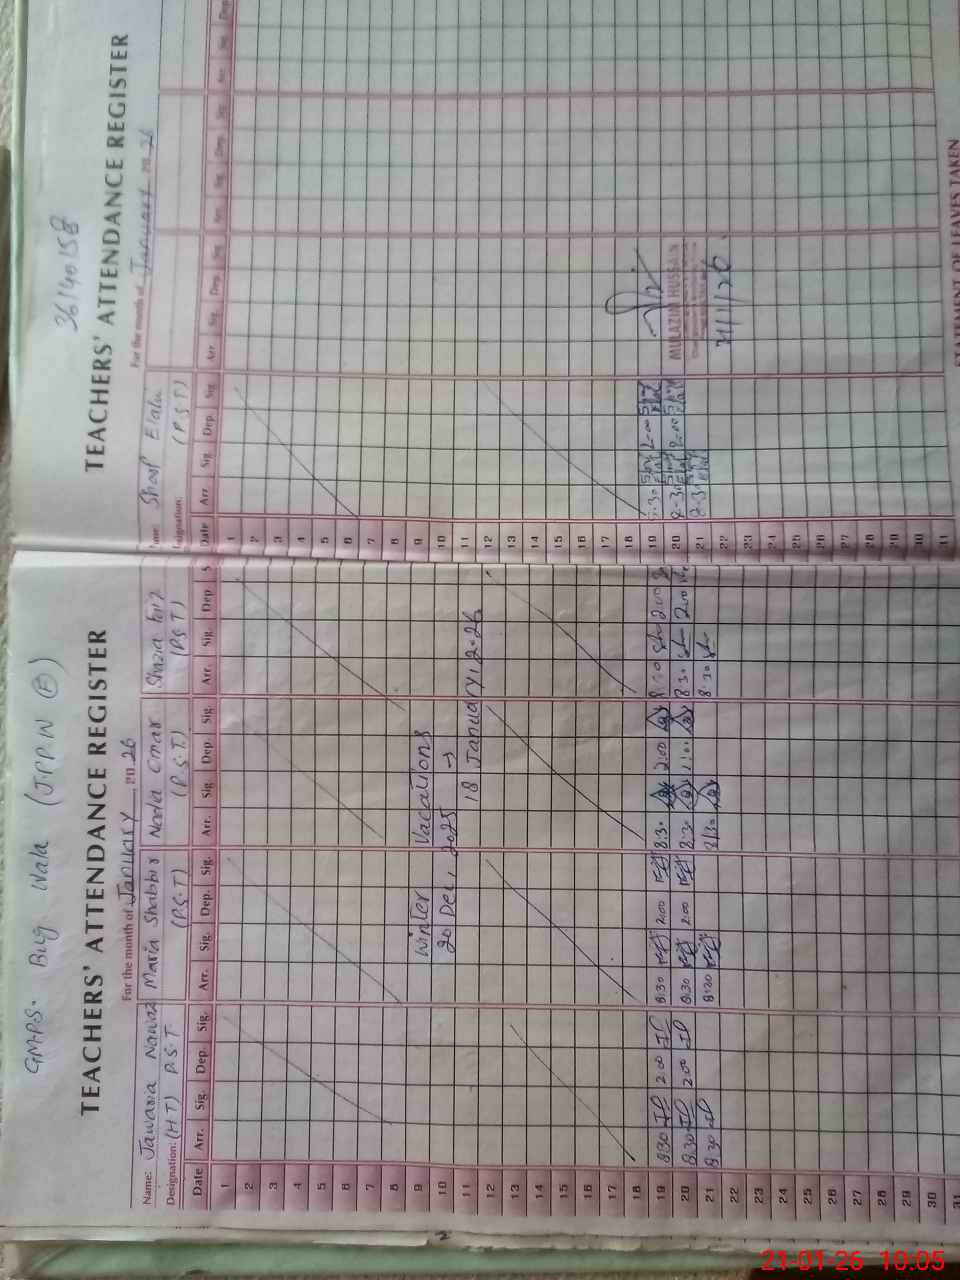 GMPS. Bug Wala (JPPIN (E)
TEACHERS' ATTENDANCE REGISTER
For the month of January 20 26
Name: Jawaria Nawaz Maria Shabbir Nadia Umar Shazia
Designation: (HT) P.S.T (P.S.T) (P.S.T) (P.S.T)
Date Arr. Sig. Dep. Sig. Arr. Sig. Dep. Sig. Arr. Sig. Dep. Sig. Arr. Sig. Dep S
1
2
3
4
5
6
7
8
9 Winter Vacations
10 20 Dec, 2025 →
11 18 January, 2026
12
13
14
15
16
17
18
19 8:30 2:00 8:30 2:00 8:30 2:00 8:30 2:00
20 8:30 2:00 8:30 2:00 8:30 8:30 2:00
21 8:30 8:30 8:30 8:30
22
23
24
25
26
27
28
29
30
31
36140158
TEACHERS' ATTENDANCE REGISTER
For the month of January 20 26
(P.S.T)
Date Arr. Sig. Dep. Sig. Arr. Sig. Dep. Sig. Arr. Sig. Dep. Sig. Arr. Sig. Dep
1
2
3
4
5
6
7
8
9
10
11
12
13
14
15
16
17
18
19 8-30 2-00
20 8-30 2-00 MULAZIM HUSSAIN
21 8-30
22 21/1/26
23
24
25
26
27
28
29
30
31
STATEMENT OF LEAVES TAKEN
21-01-26 10:05